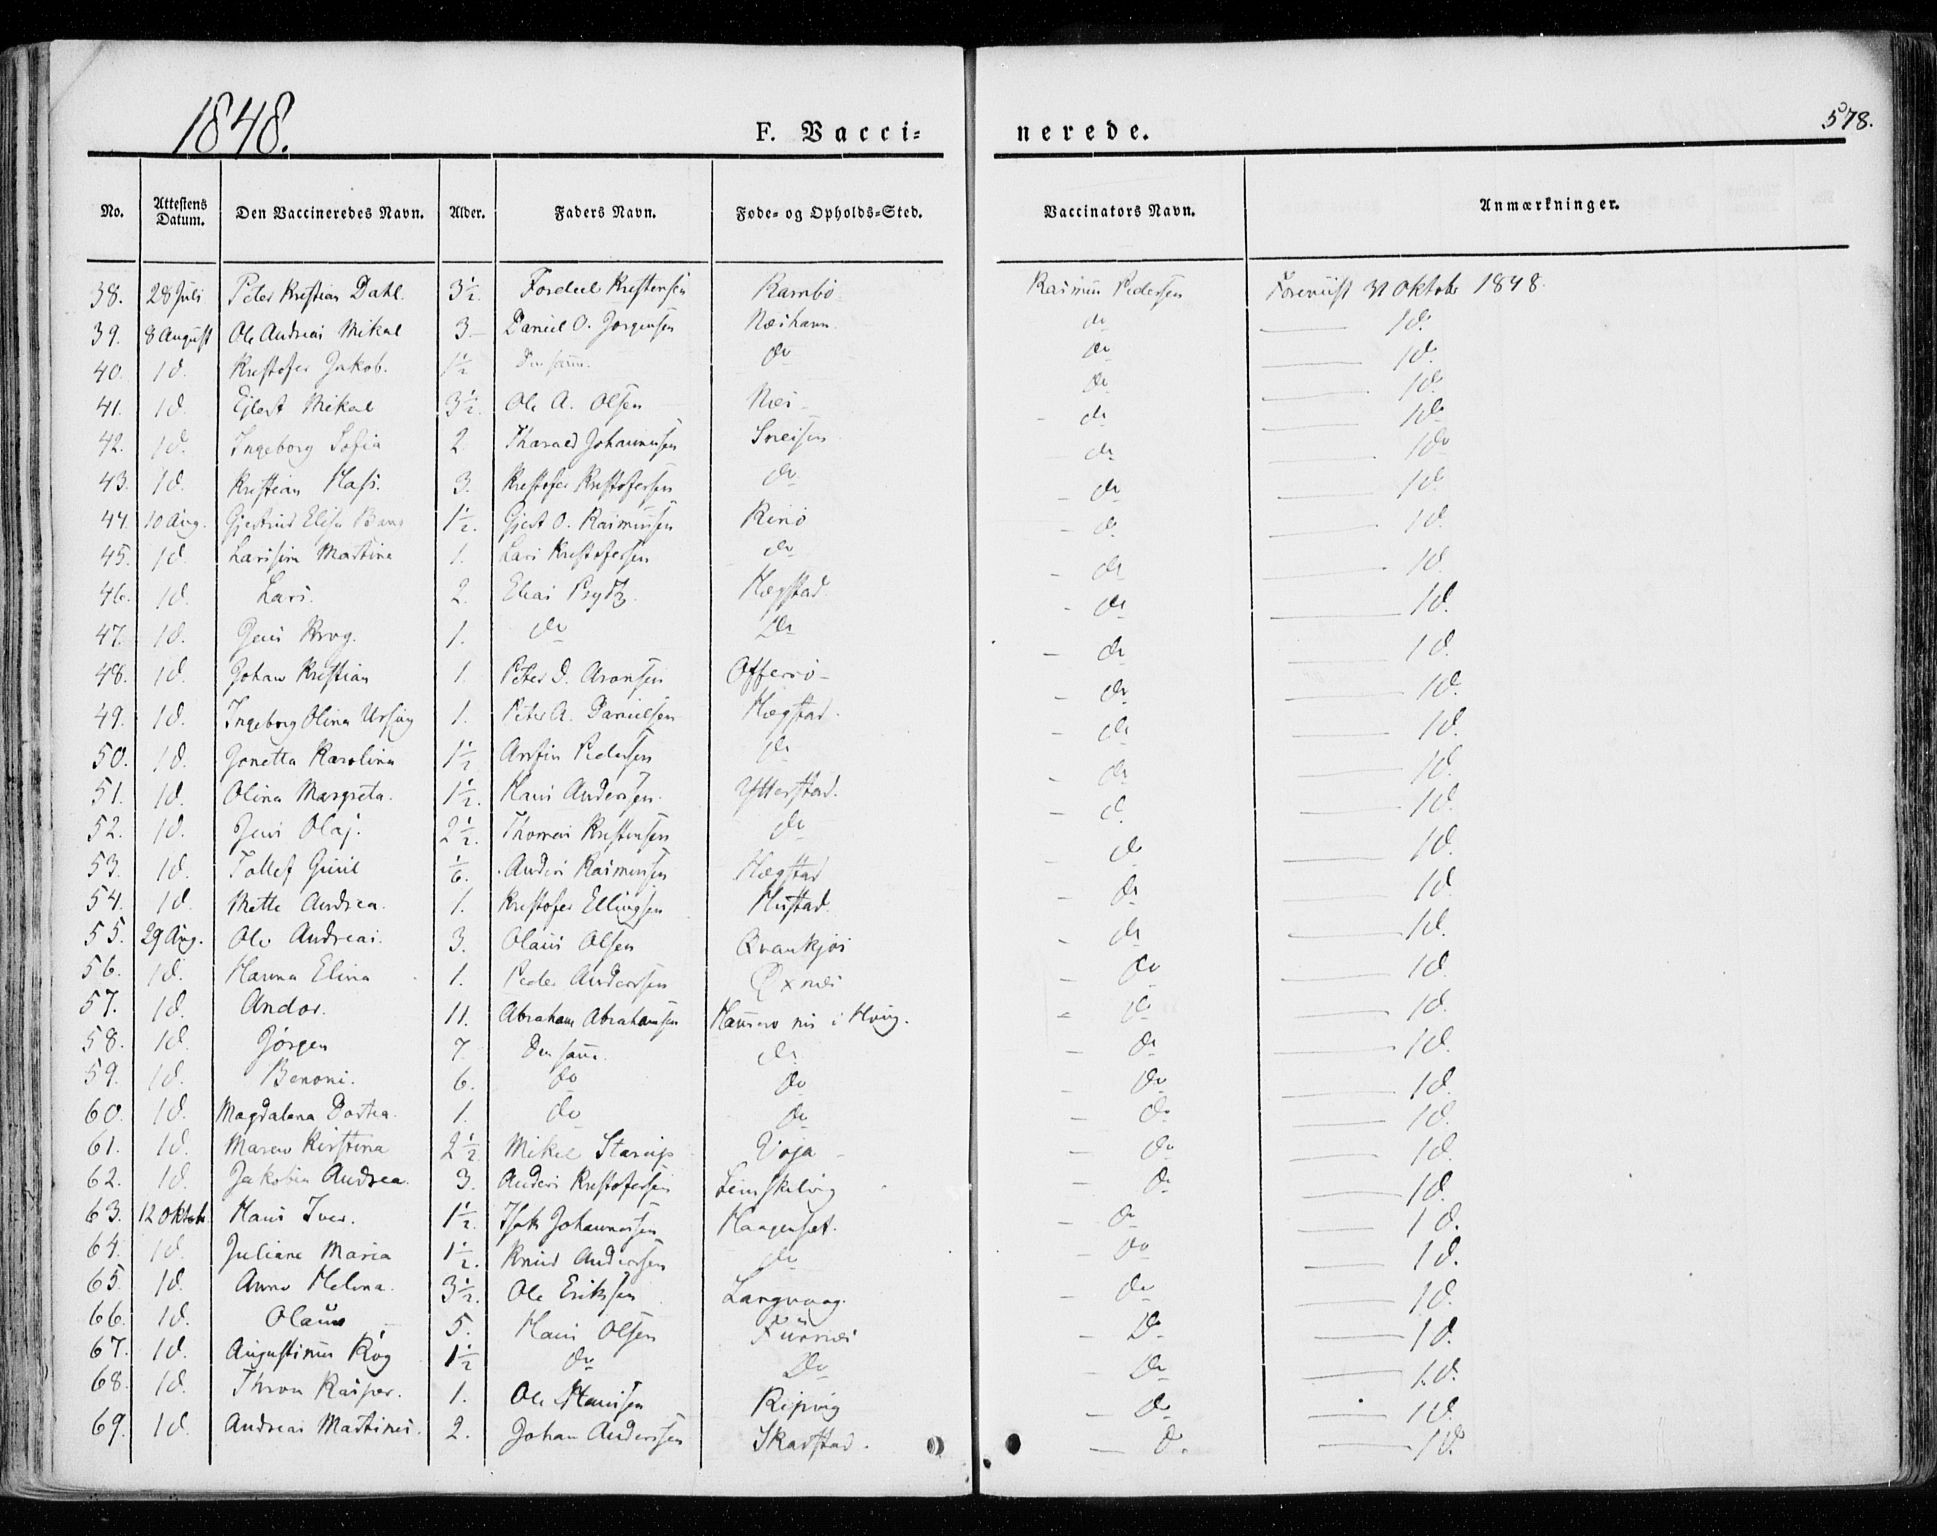 1848.
F. Vacci=
nerede.
578.
No. Attestens Datum. Den Vaccineredes Navn. Alder. Faders Navn. Føde= og Opholds=Sted. Vaccinators Navn. Anmærkninger.
38. 28 Juli Peter Kristian Dahl. 3½. Kristensen Rasmus Pedersen Foreviist 31 Oktobr 1848.
39. 8 August Ole Andreas Mikal 3 Daniel O. Jørgensen Næshavn. do 1d.
40. 1d. Kristofer Jakob. 1½ Den samme. do do 1d.
41. 1d. Ejlert Mikal 3½. Ole A. Olsen Næs do 1d.
42. 1d. Ingeborg Sofia 2. Tharald Johannessen do 1d.
43. 1d. Kristian Hass. 3. Kristofer Kristofersen do do 1d.
44. 10 Aug. Gjertrud Elisa Bang 1½. Gjert O. Rasmussen Rinø do 1d.
45. 1d. Martina 1. Lars Kristofersen do do 1d.
46. 1d. Lars. 2. Elias Prytz. Hægstad. do 1d.
47. 1d. Jens Krog. 1. do do do 1d.
48. 1d. Johan Kristian 1. Peter D. Aronsen Offersø do 1d.
49. 1d. Ingeborg Olina 1. Peter A. Danielsen Hægstad. do 1d.
50. 1d. Jonetta Karolina 1½ Arnfin Pedersen do do 1d.
51. 1d. Olina Margreta. 1½. Hans Anderssen. Ytterstad. do 1d.
52. 1d. Jens Olaj. 2½. Thomas Kristensen do do 1d.
53. 1d. Tollef 1/6. Anders Rasmussen Hægstad do 1d.
54. 1d. Mette Andrea. 1. Kristofer Ellingsen Hustad. do 1d.
55. 29 Aug. Ole Andreas. 3. Olaus Olsen Qvankjos do 1d.
56. 1d. Hanna Elina 1. Peder Anderssen Øxnæs do 1d.
57. 1d. Andor. 11. Abraham Abrahamsen do 1d.
58. 1d. Jørgen 7. Den samme. do do 1d.
59. 1d. Benoni. 6. do do do 1d.
60. 1d. Magdalena Dortea. 1. do do do 1d.
61. 1d. Maren Kirstina 2½ Mikel Starup Voja do 1d.
62. 1d. Jakobin Andrea. 3. Anders Kristofersen do 1d.
63. 12 Oktobr. Hans Iver. 1½. Isak Johannessen Haagenset. do 1d.
64. 1d. Juliane Maria 1½. Knud Anderssen do do 1d.
65. 1d. Anne Helena. 3½. Ole Eriksen Langvaag. do 1d.
66. 1d. Olaus 5. Hans Olsen Fürnæs do 1d.
67. 1d. Augustinus Kog 1½ do do do 1d.
68. 1d. Thron Kasper. 1. Ole Hanssen Ripvig do 1d.
69. 1d. Andreas Martines. 2. Johan Anderssen Skarstad. do 1d.